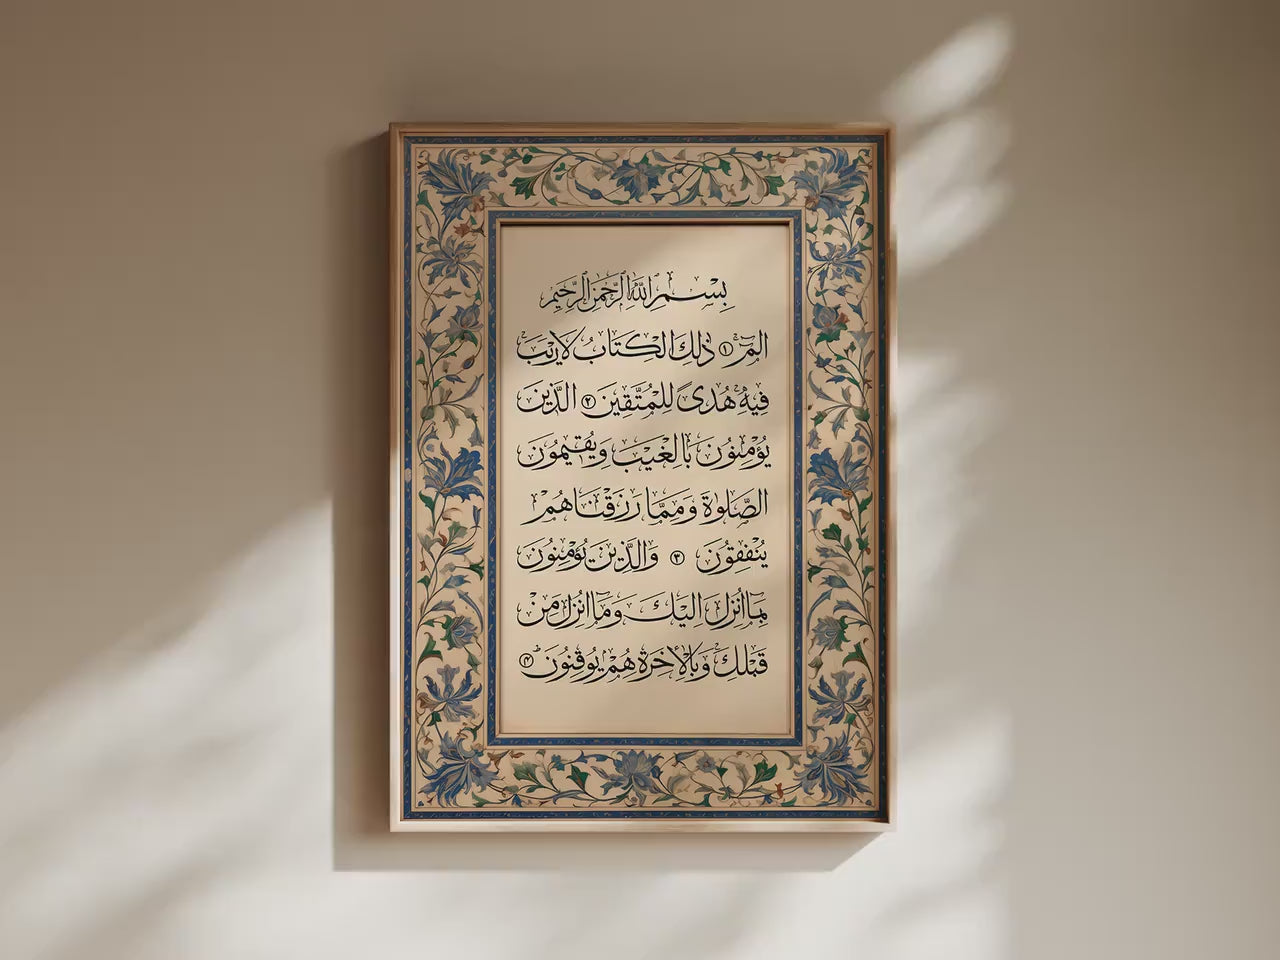 بِسْمِ اللَّهِ الرَّحْمَنِ الرَّحِيمِ
الم ۝١ ذَلِكَ الْكِتَابُ لَا رَيْبَ
فِيهِ هُدًى لِلْمُتَّقِينَ ۝٢ الَّذِينَ
يُؤْمِنُونَ بِالْغَيْبِ وَيُقِيمُونَ
الصَّلَوٰةَ وَمِمَّا رَزَقْنَاهُمْ
يُنْفِقُونَ ۝٣ وَالَّذِينَ يُؤْمِنُونَ
بِمَا أُنْزِلَ إِلَيْكَ وَمَا أُنْزِلَ مِنْ
قَبْلِكَ وَبِالْأَخِرَةِ هُمْ يُوقِنُونَ ۝٤